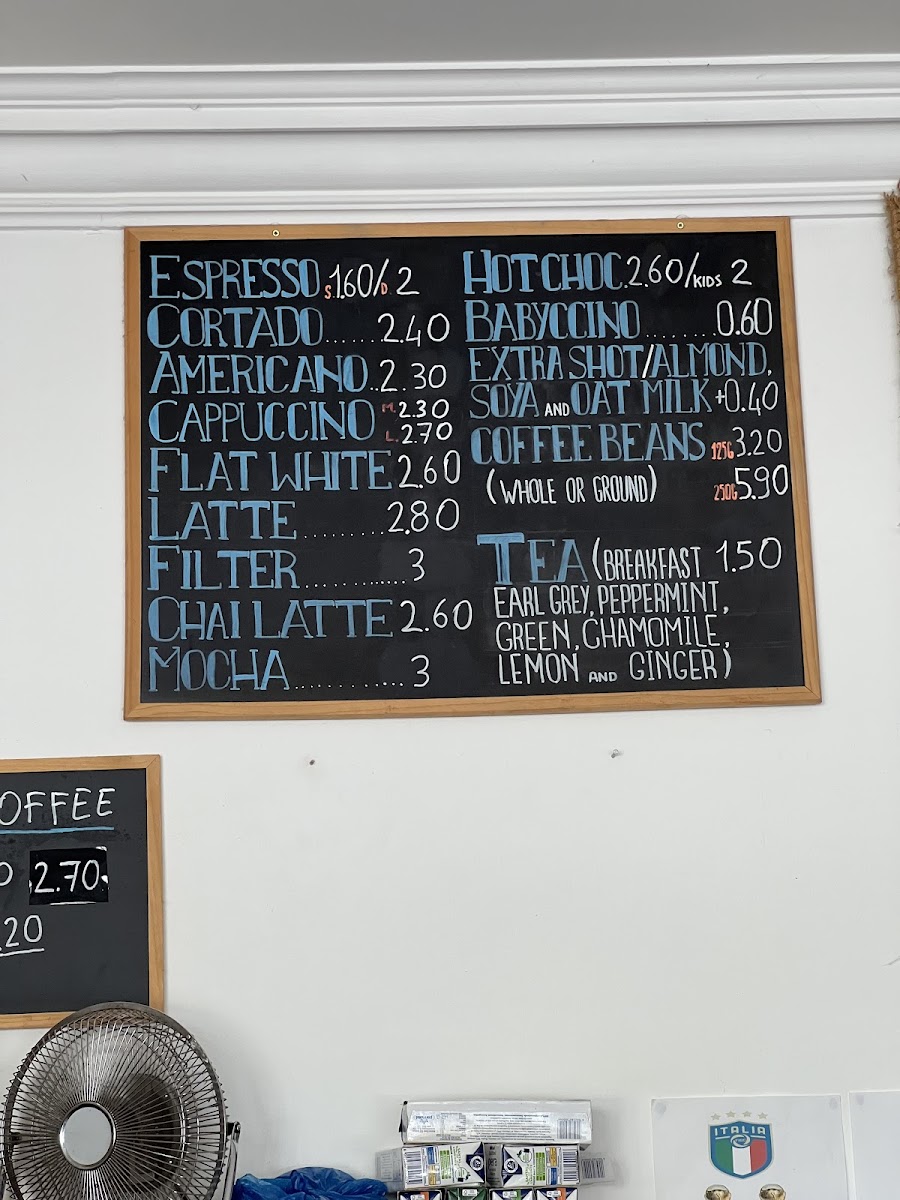 ESPRESSO S.1.60/D. 2
CORTADO......2.40
AMERICANO..2.30
CAPPUCCINO M.2.30
L.2.70
FLAT WHITE 2.60
LATTE.........2.80
FILTER...........3
CHAI LATTE 2.60
MOCHA............3
HOT CHOC.2.60/KIDS 2
BABYCCINO.......0.60
EXTRA SHOT/ALMOND,
SOYA AND OAT MILK +0.40
COFFEE BEANS 125G 3.20
(WHOLE OR GROUND) 250G 5.90
TEA (BREAKFAST 1.50
EARL GREY, PEPPERMINT,
GREEN, CHAMOMILE,
LEMON AND GINGER)
OFFEE
O 2.70
.20
ITALIA